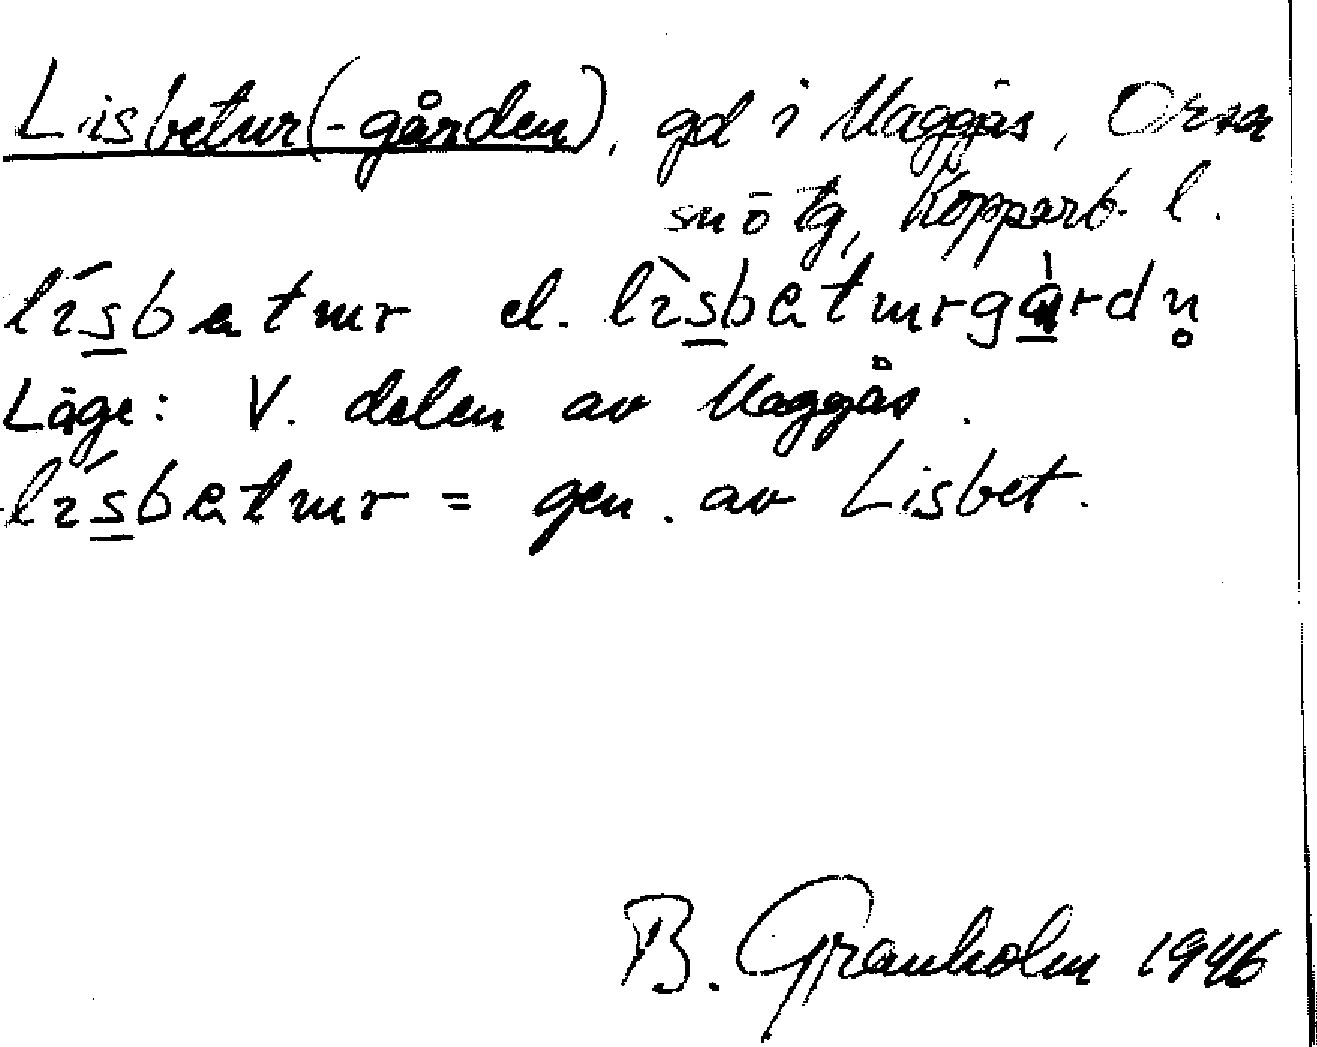 Lisbetur(-gården), gd i Maggås, Orsa
sn o tg, Kopparb. l.
lísbetur el. lìsbeturgàrdn̥
Läge: V. delen av Maggås.
lísbetur = gen. av Lisbet.
B. Granholm 1946